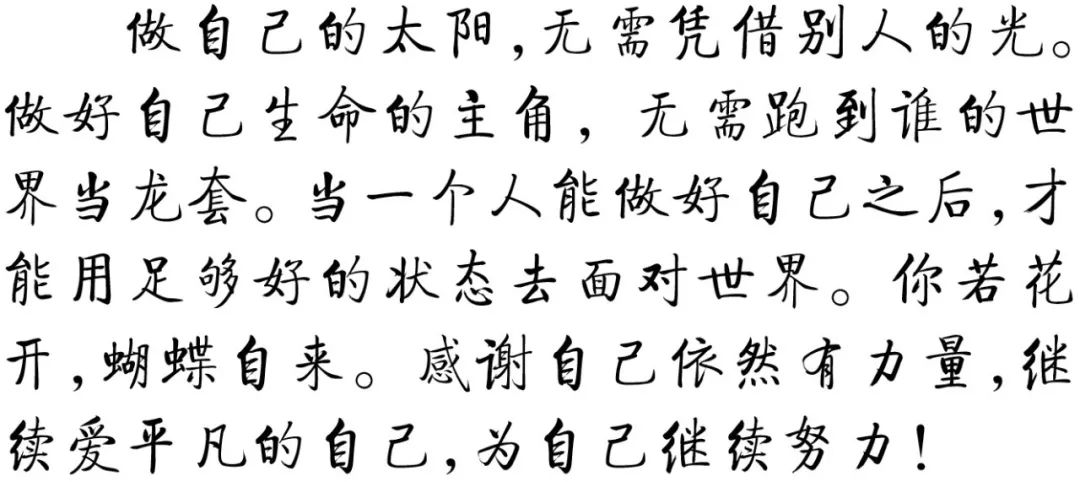 做自己的太阳,无需凭借别人的光。
做好自己生命的主角，无需跑到谁的世
界当龙套。当一个人能做好自己之后,才
能用足够好的状态去面对世界。你若花
开,蝴蝶自来。感谢自己依然有力量,继
续爱平凡的自己,为自己继续努力!